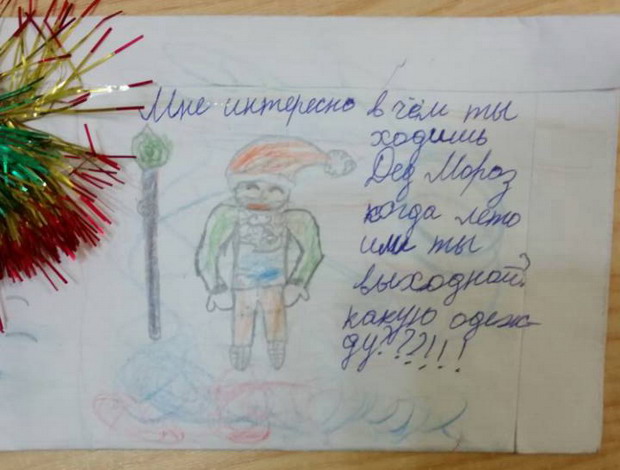 Мне интересно в чём ты
ходишь
Дед Мороз
когда лето
или ты
выходной?
какую одеж-
ду???!!!